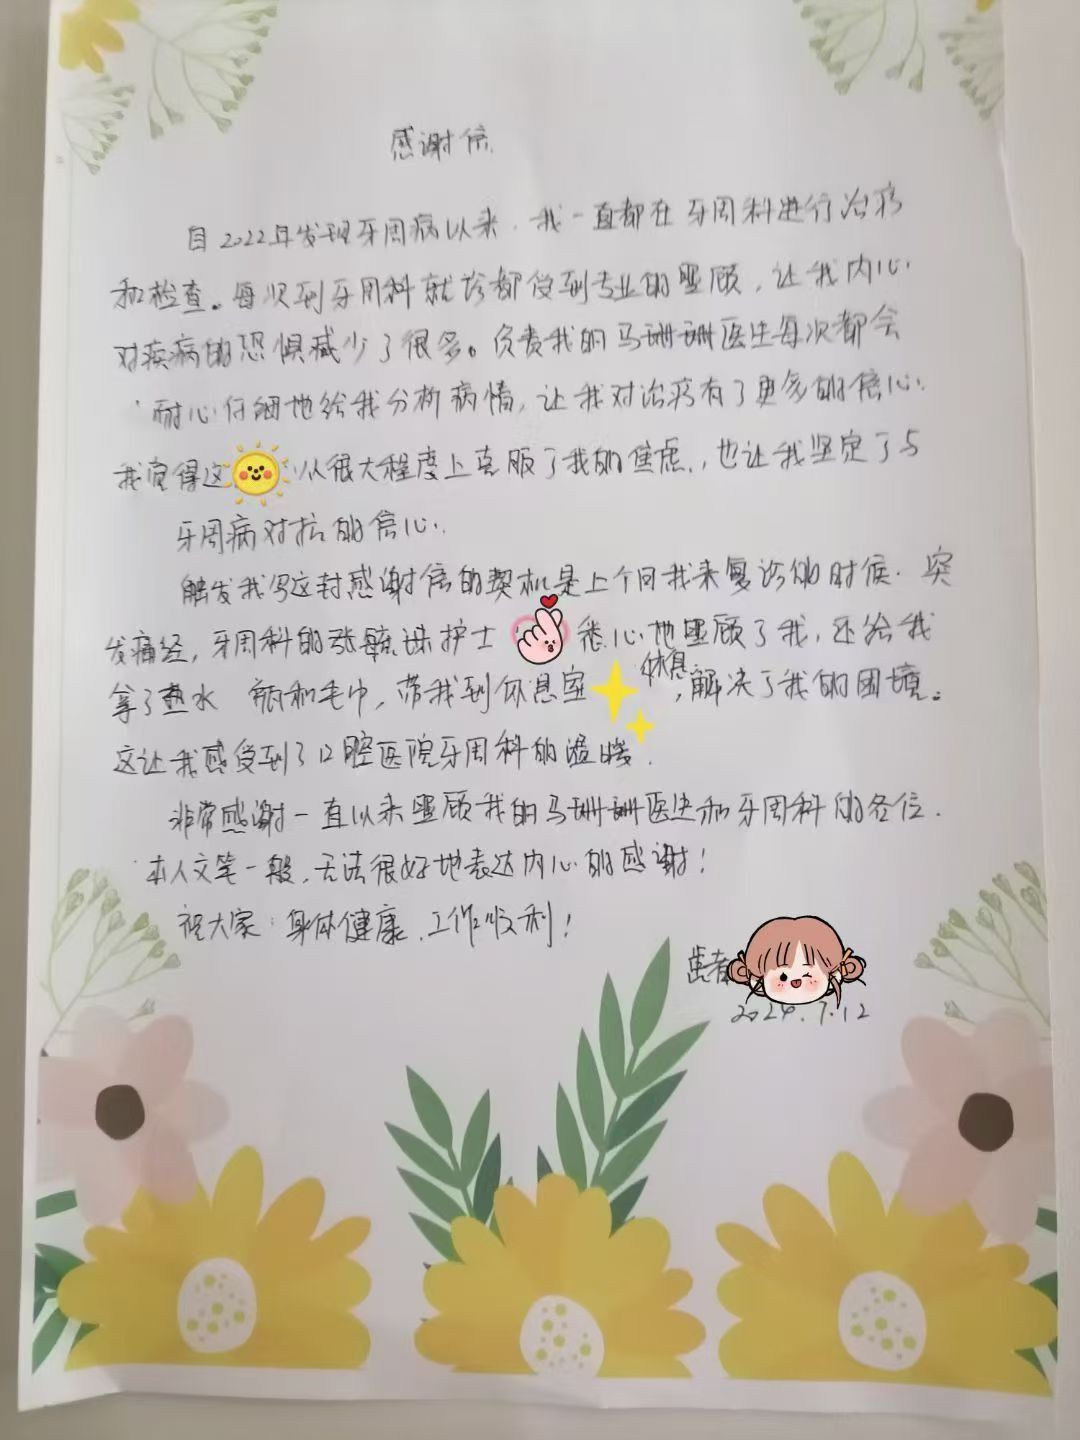 感谢信
自2022年发现牙周病以来，我一直都在牙周科进行治疗
和检查。每次到牙周科就诊都受到专业的照顾，让我内心
对疾病的恐惧减少了很多。负责我的马珊珊医生每次都会
耐心仔细地给我分析病情，让我对治疗有了更多的信心.
我觉得这 从很大程度上克服了我的焦虑，也让我坚定了与
牙周病对抗的信心.
触发我写这封感谢信的契机是上个月我来复诊的时候.突
发痛经，牙周科的张 珠护士 悉心地照顾了我，还给我
拿了热水 瓶和毛巾，带我到休息室 休息，解决了我的困境。
这让我感受到了口腔医院牙周科的温暖.
非常感谢一直以来照顾我的马珊珊医生和牙周科的各位.
本人文笔一般，无法很好地表达内心的感谢！
祝大家：身体健康、工作顺利！
患者
2024.7.12